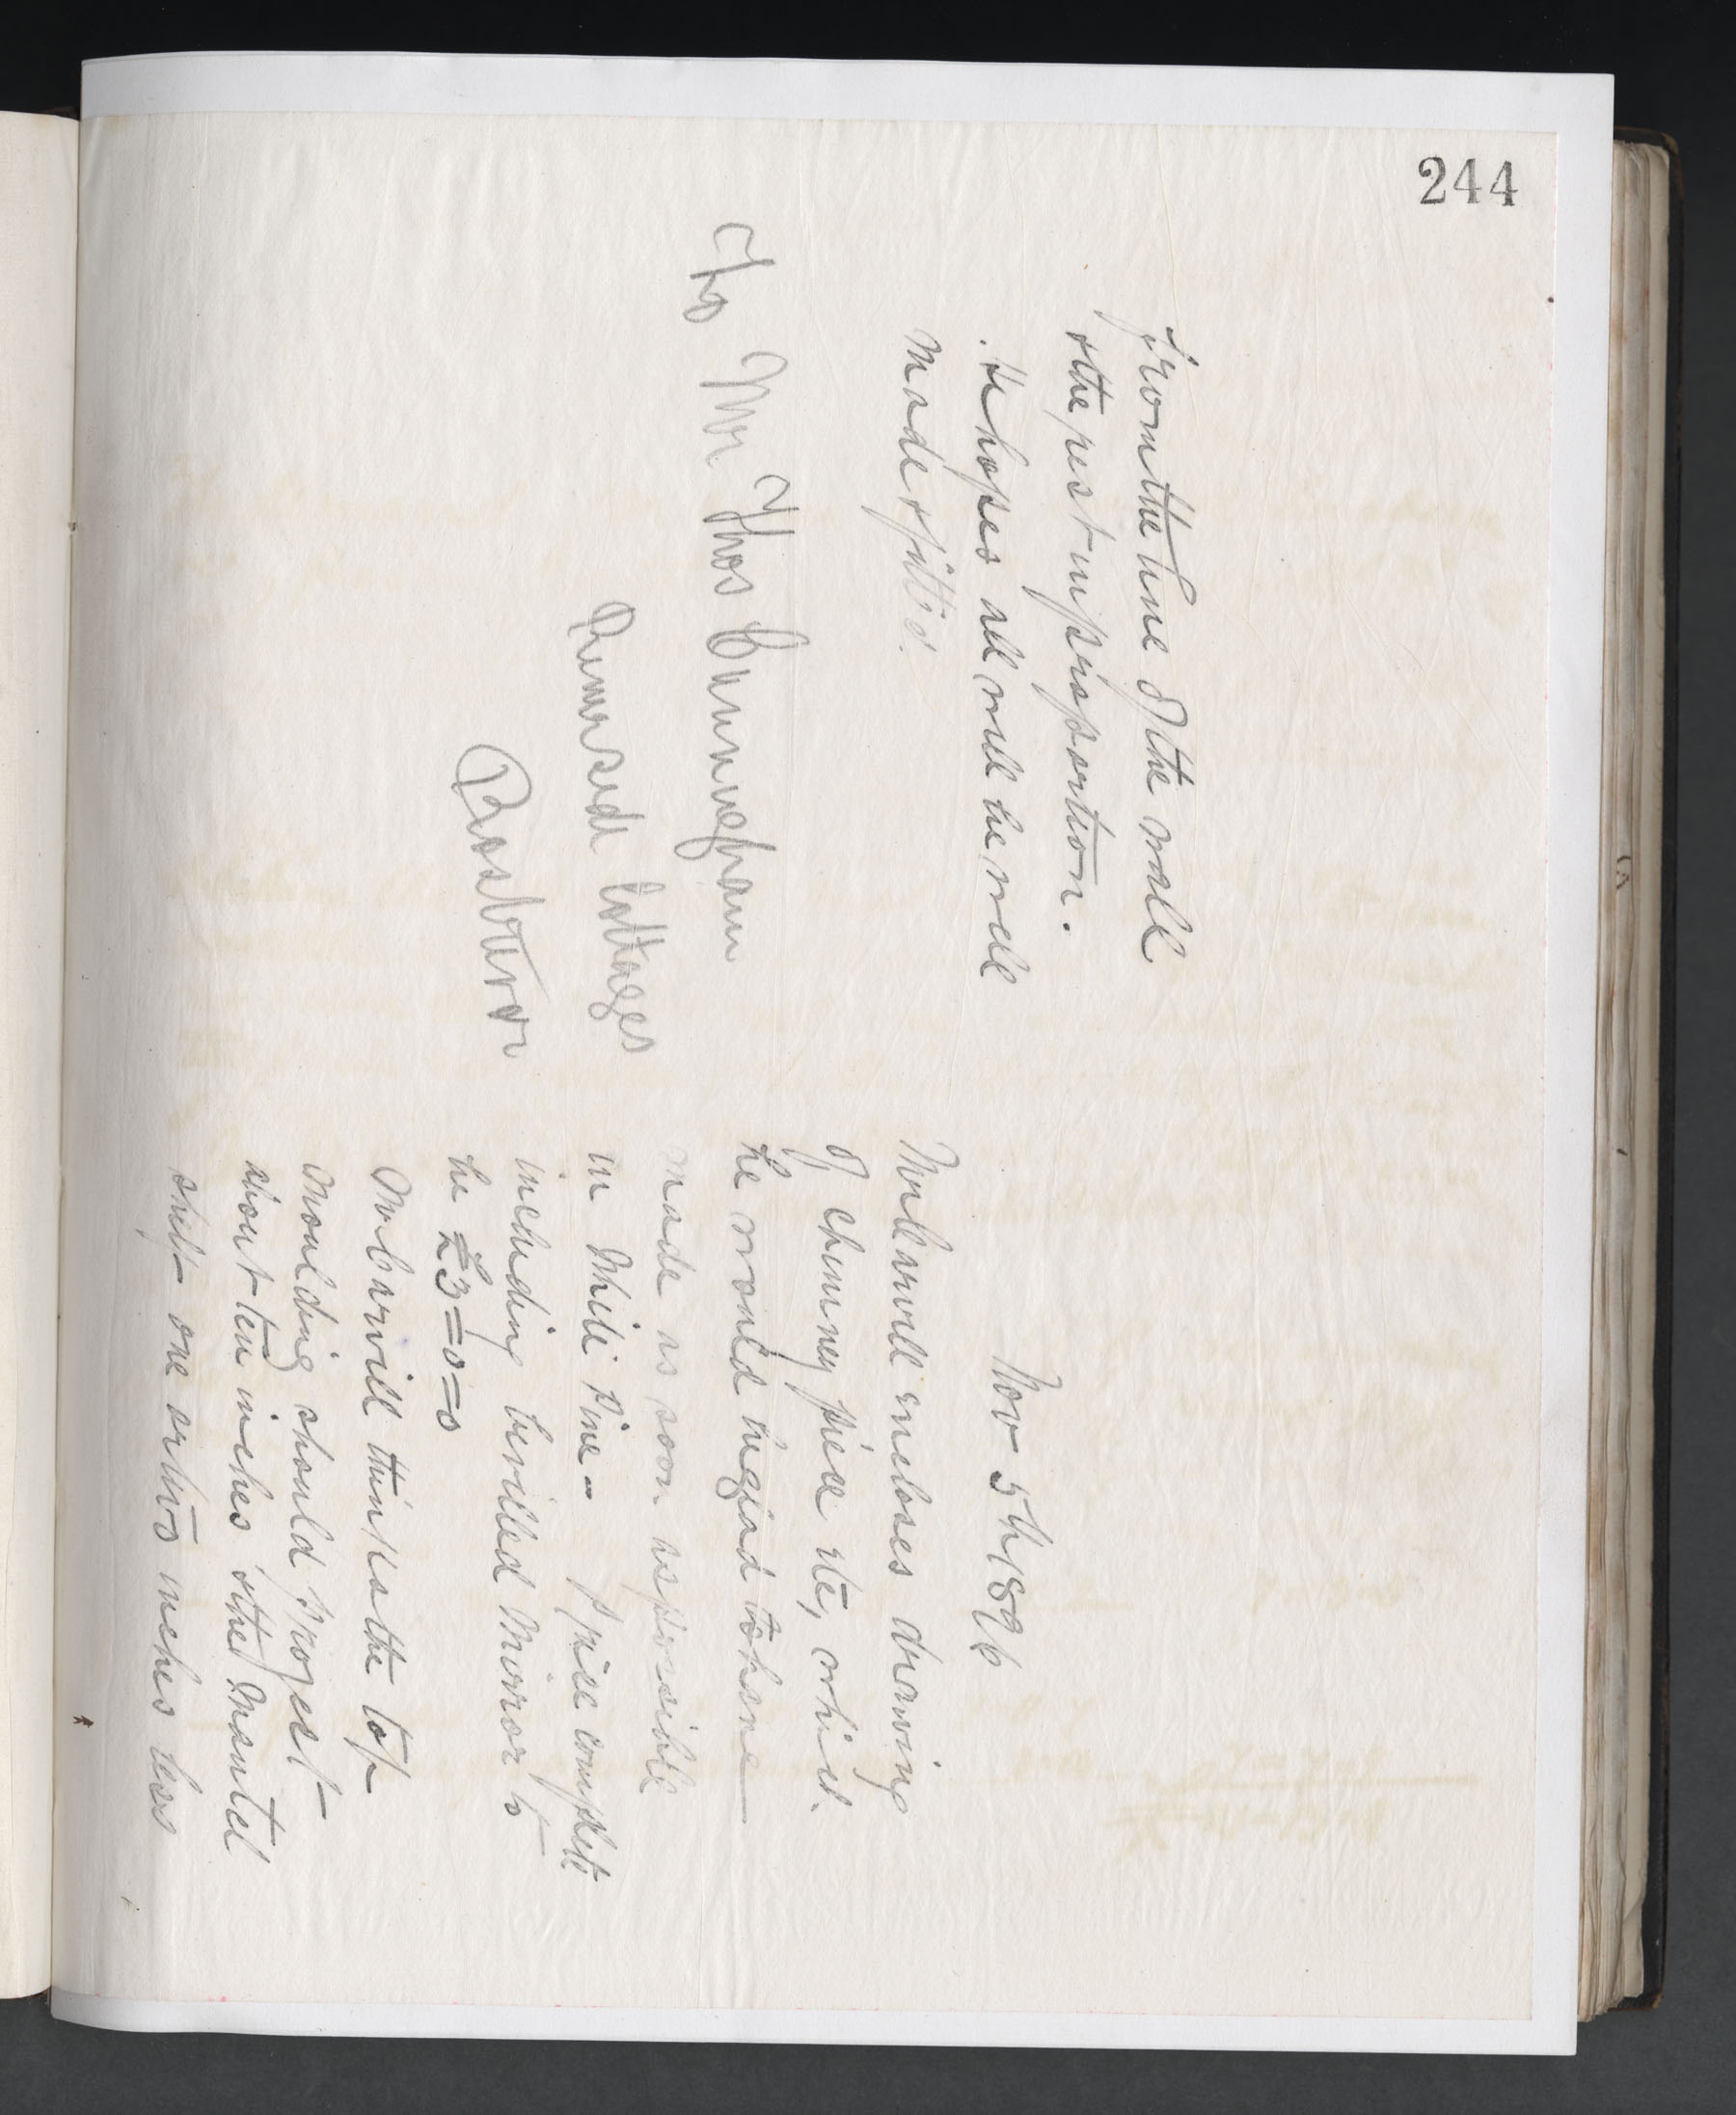 244
Nov 5th 1896
Mr Carvill encloses drawing
of chimney piece etc, which
he would be glad to have
made as soon as possible
in White Pine - price complete
including bevilled Mirror to
be £3=0=0
Mr Carvill thinks the top
moulding should project
about ten inches & the mantel
shelf one or two inches less
from the line of the wall
& the rest in proportion.
He hopes all will be well
made & fitted.
To Mr Thos Cunningham
Riverside Cottages
Rostrevor